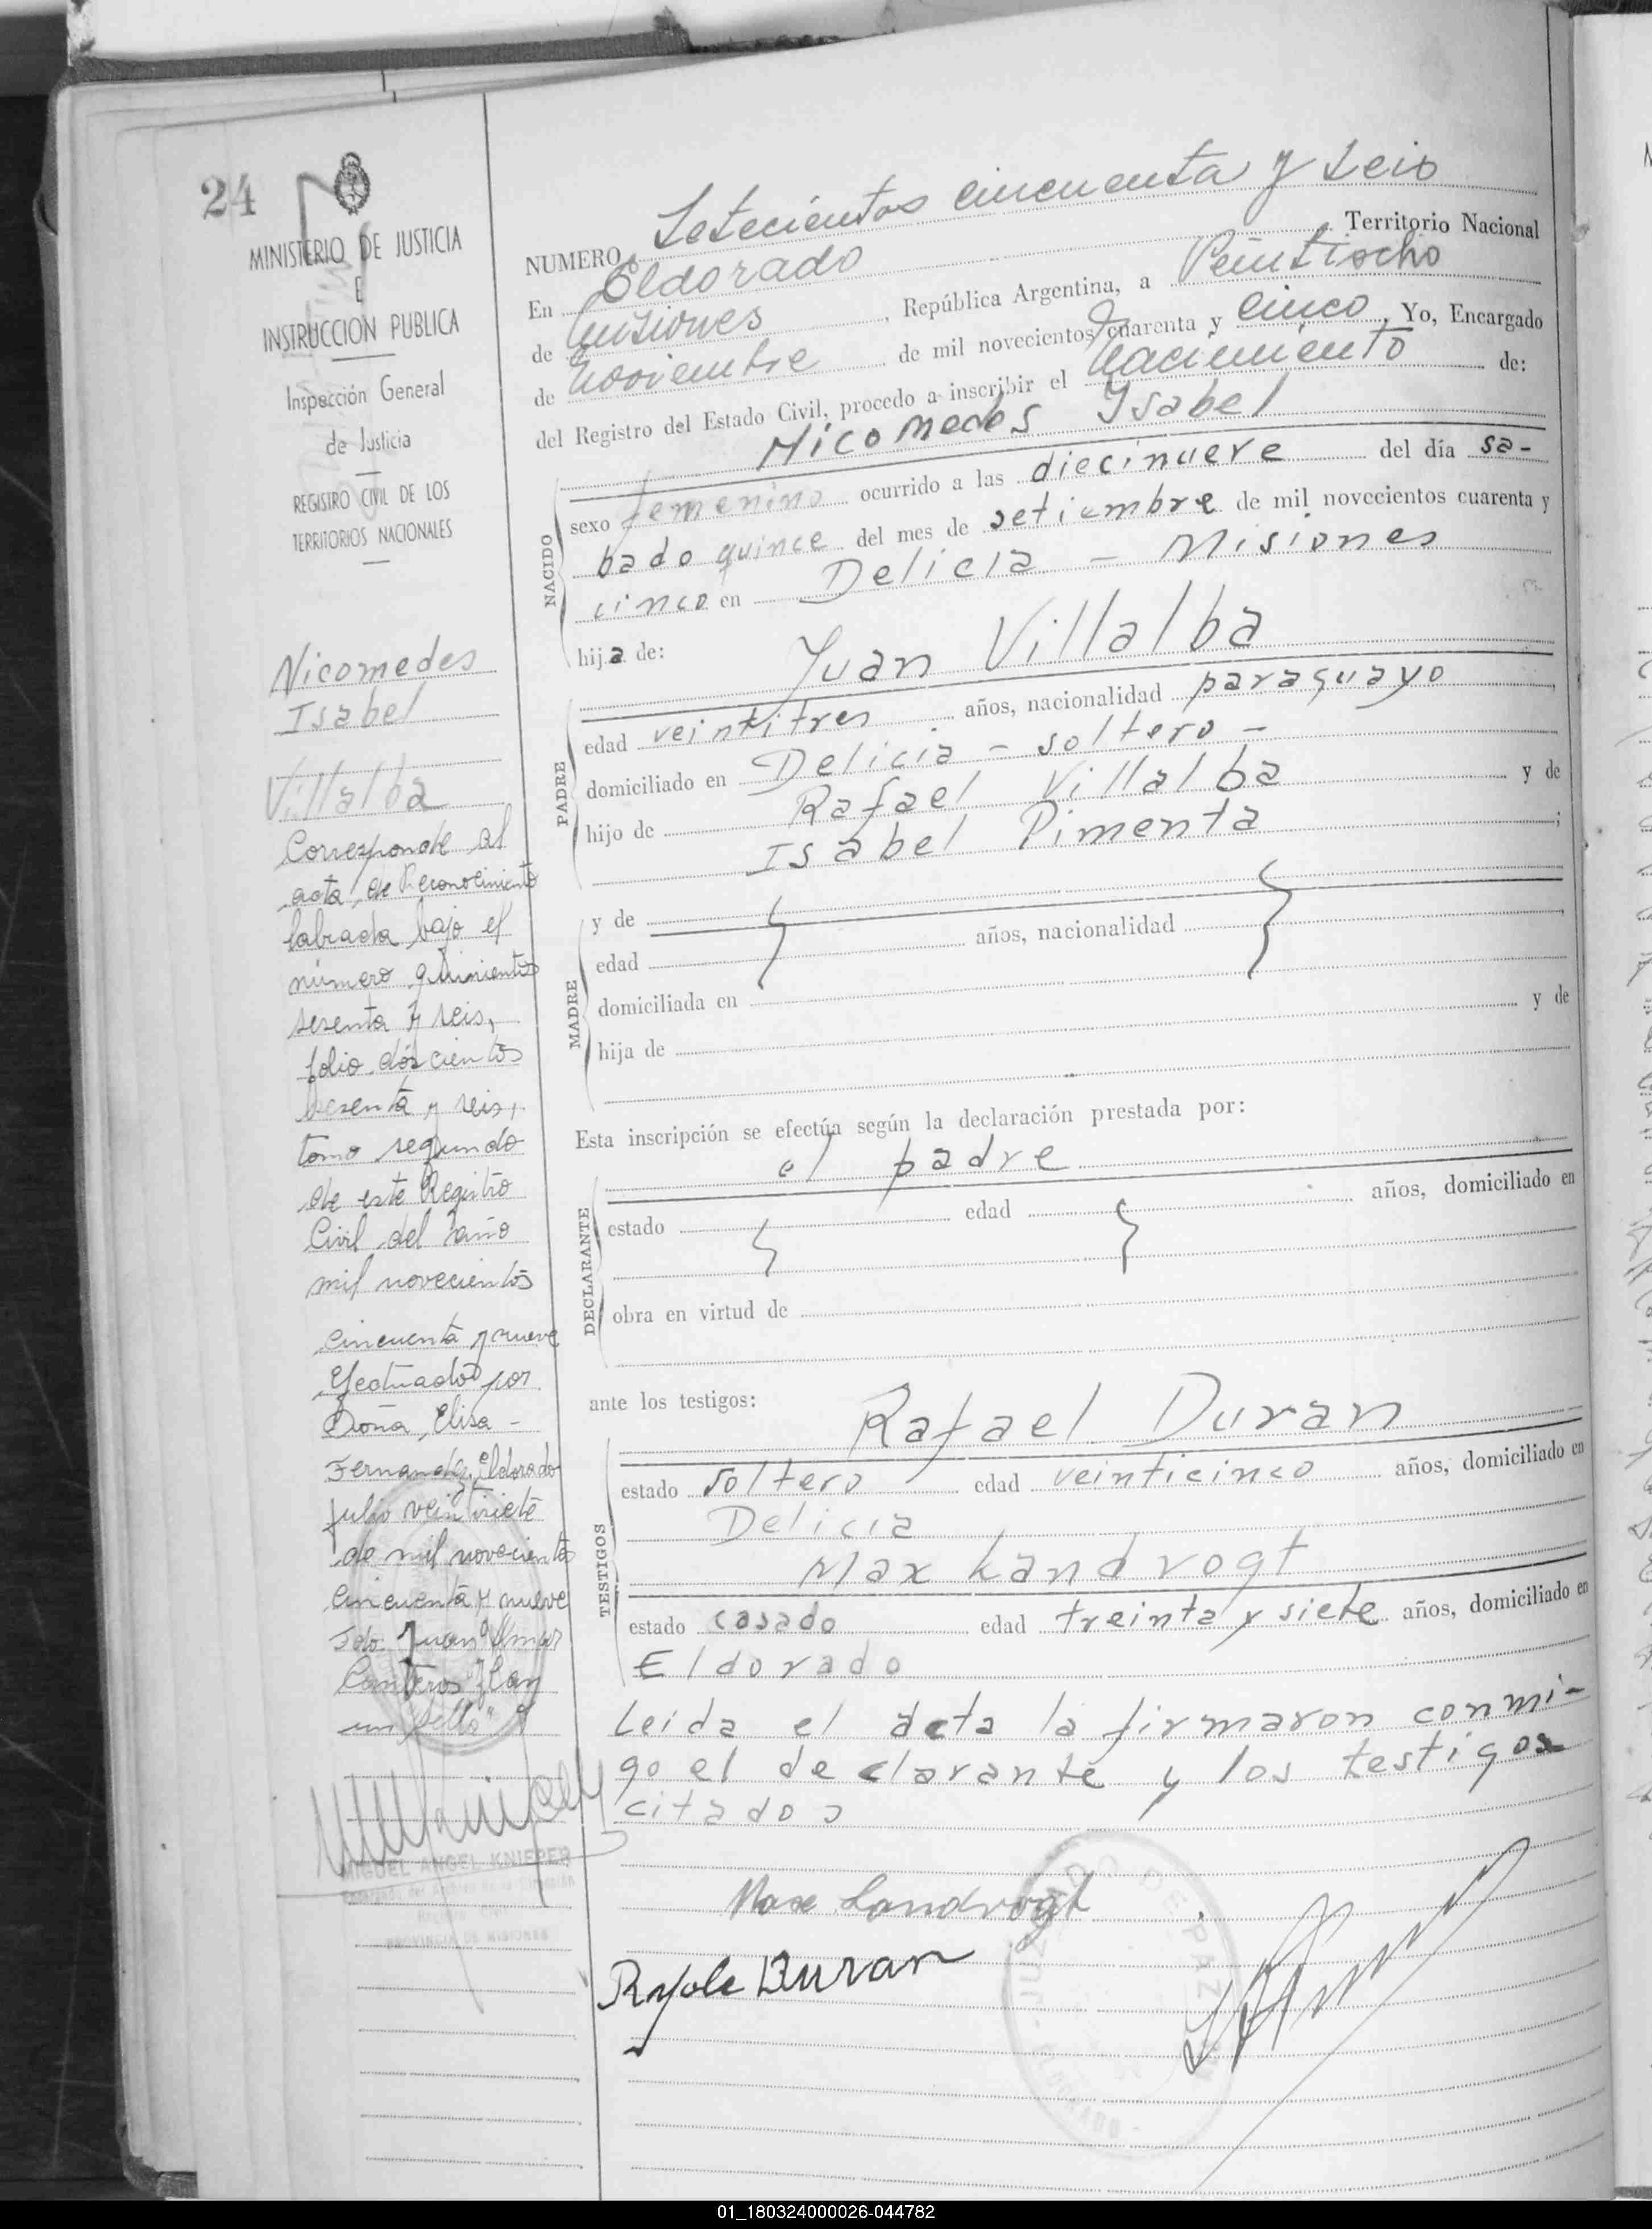 24
MINISTERIO DE JUSTICIA
E
INSTRUCCION PUBLICA
Inspección General
de Justicia
REGISTRO CIVIL DE LOS
TERRITORIOS NACIONALES
Nicomedes
Isabel
Villalba
Corresponde al
acta de Reconocimiento
labrada bajo el
número quinientos
sesenta y seis,
folio dos cientos
sesenta y seis,
tomo segundo
de este Registro
Civil del año
mil novecientos
cincuenta y nueve
Efectuado por
Doña Elisa -
Fernandez, Eldorado
julio veintisiete
de mil novecientos
cincuenta y nueve
Fdo. Juan Omar
Canteros Hay
un sello"
MIGUEL ANGEL KNIEPER
PROVINCIA DE MISIONES
NUMERO Setecientos cincuenta y seis
En Eldorado Territorio Nacional
de Misiones, República Argentina, a Veintiocho
de noviembre de mil novecientos cuarenta y cinco, Yo, Encargado
del Registro del Estado Civil, procedo a inscribir el nacimiento de:
Nicomedes Ysabel
NACIDO
sexo femenino ocurrido a las diecinueve del día sa-
bado quince del mes de setiembre de mil novecientos cuarenta y
cinco en Delicia - Misiones
hija de: Juan Villalba
PADRE
edad veintitres años, nacionalidad paraguayo,
domiciliado en Delicia - soltero -
hijo de Rafael Villalba y de
Isabel Pimenta;
MADRE
y de
edad años, nacionalidad
domiciliada en
hija de y de
Esta inscripción se efectúa según la declaración prestada por:
el padre
DECLARANTE
estado edad años, domiciliado en
obra en virtud de
ante los testigos: Rafael Duran
TESTIGOS
estado soltero edad veinticinco años, domiciliado en
Delicia
Max Landvogt
estado casado edad treinta y siete años, domiciliado en
Eldorado
Leida el acta la firmaron conmi-
go el declarante y los testigos
citados
Max Landvogt
Duran
DE PAZ
01_180324000026-044782